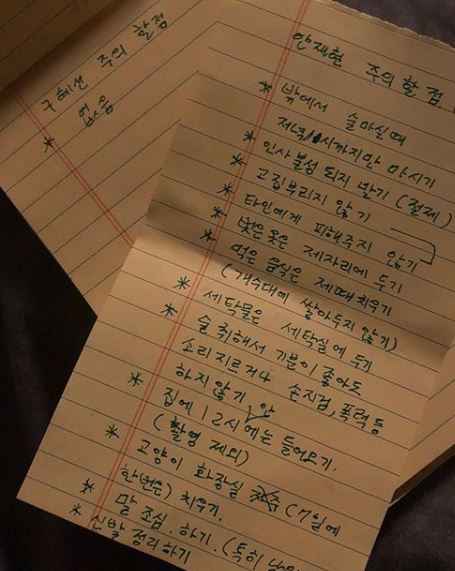 구혜선 주의 할점
* 없음
안재현 주의 할 점
* 밖에서 술마실때
저녁 11시까지만 마시기
* 인사불성 되지 말기 (절제)
* 고집부리지 않기
* 타인에게 피해주지 않기
* 벗은 옷은 제자리에 두기
* 먹은 음식은 제때 치우기
(개수대에 쌓아두지 않기)
* 세탁물은 세탁실에 두기
* 술 취해서 기분이 좋아도
소리 지르거나 손찌검, 폭력 등
하지 않기
* 집에 12시 안에는 들어오기.
(촬영 제외)
* 고양이 화장실 (7일에
한번은) 치우기.
* 말 조심. 하기. (특히
* 신발 정리하기